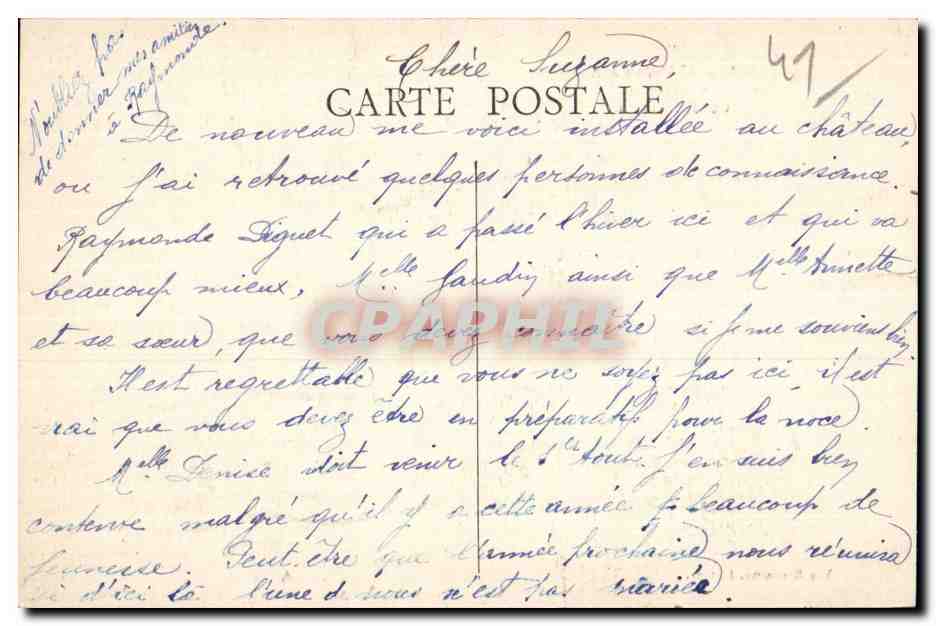 N'oubliez pas
de donner mes amitiés
à Raymonde.
41
Chère Suzanne,
CARTE POSTALE
De nouveau me voici installée au château,
ou J'ai retrouvé quelques personnes de connaissance.
Raymonde Diguet qui a passé l'hiver ici et qui va
beaucoup mieux, Melle Gaudin ainsi que Melle Annette
et sa sœur, que vous devez connaître si je me souviens bien
CPAPHIL
Il est regrettable que vous ne soyez pas ici, il est
vrai que vous devez être en préparatifs pour la noce.
Melle Denise doit venir le 1er Août. J'en suis bien
contente malgré qu'il y a cette année beaucoup de
jeunesse. Peut-être que l'année prochaine nous réunira
si d'ici là l'une de nous n'est pas mariée.